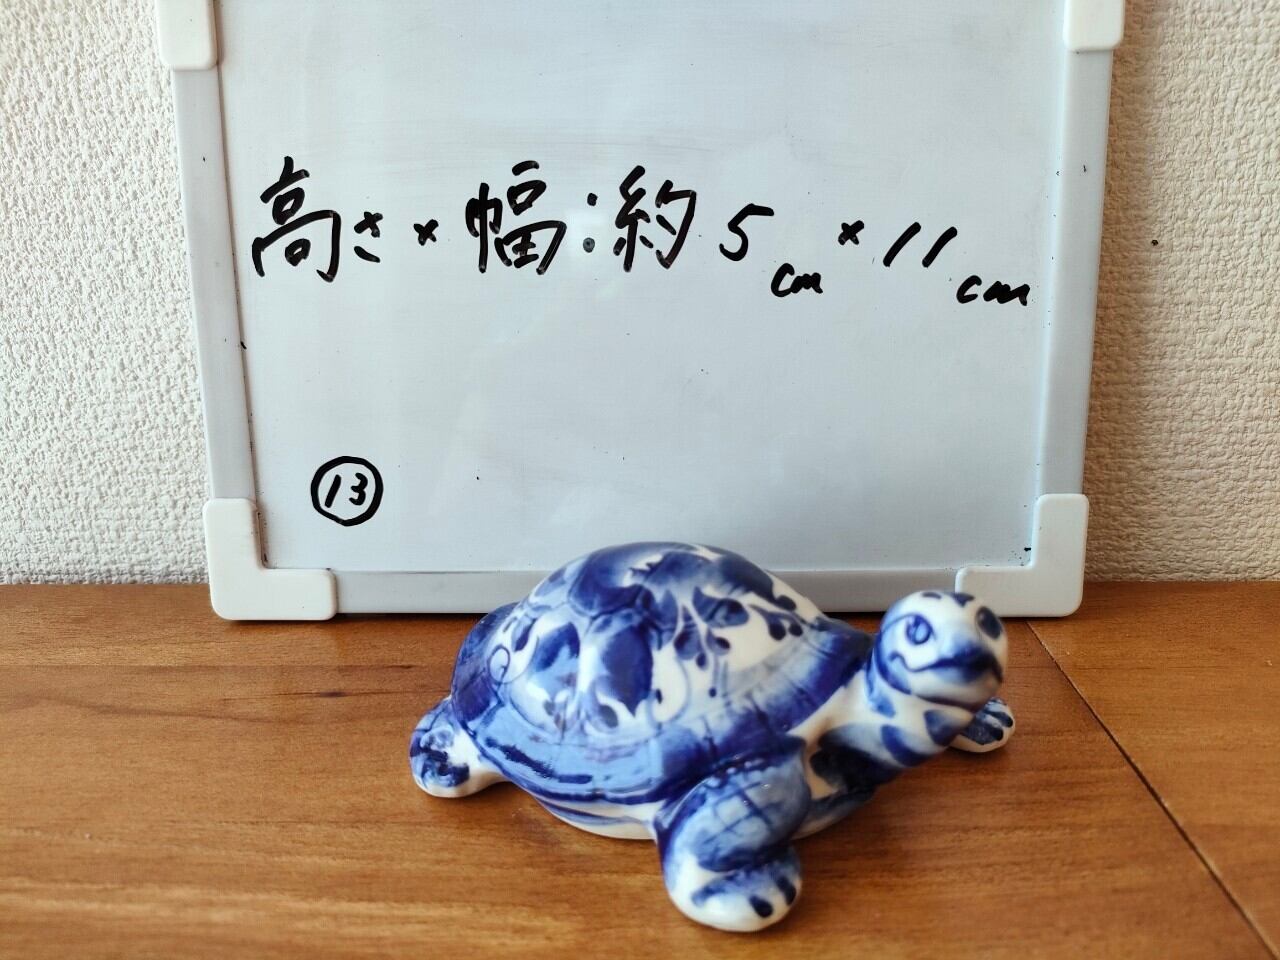 高さ×幅:約5cm×11cm
⑬